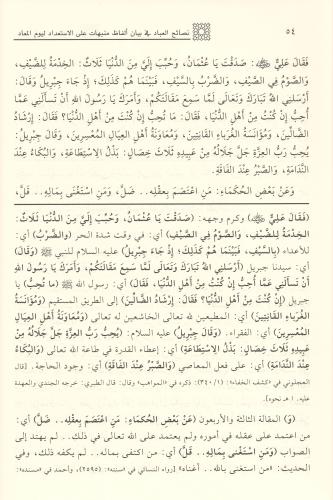 ٥٤ نصائح العباد في بيان ألفاظ منبهات على الاستعداد ليوم المعاد
فَقَالَ عَلِيٌّ ﷺ: صَدَقْتَ يَا عُثْمَانُ، وَحُبِّبَ إِلَيَّ مِنَ الدُّنْيَا ثَلَاثٌ: الْخِدْمَةُ لِلضَّيْفِ،
وَالصَّوْمُ فِي الصَّيْفِ، وَالضَّرْبُ بِالسَّيْفِ، فَبَيْنَمَا هُمْ كَذَلِكَ؛ إِذْ جَاءَ جِبْرِيلُ وَقَالَ:
أَرْسَلَنِي اللهُ تَبَارَكَ وَتَعَالَى لَمَّا سَمِعَ مَقَالَتَكُمْ، وَأَمَرَكَ يَا رَسُولَ اللهِ أَنْ تَسْأَلَنِي عَمَّا
أُحِبُّ إِنْ كُنْتُ مِنْ أَهْلِ الدُّنْيَا، فَقَالَ: مَا تُحِبُّ إِنْ كُنْتَ مِنْ أَهْلِ الدُّنْيَا؟ فَقَالَ: إِرْشَادُ
الضَّالِّينَ، وَمُؤَانَسَةُ الْغُرَبَاءِ الْقَانِتِينَ، وَمُعَاوَنَةُ أَهْلِ الْعِيَالِ الْمُعْسِرِينَ، وَقَالَ جِبْرِيلُ:
يُحِبُّ رَبُّ الْعِزَّةِ جَلَّ جَلَالُهُ مِنْ عَبِيدِهِ ثَلَاثَ خِصَالٍ: بَذْلُ الْاسْتِطَاعَةِ، وَالْبُكَاءُ عِنْدَ
النَّدَامَةِ، وَالصَّبْرُ عِنْدَ الْفَاقَةِ.
وَعَنْ بَعْضِ الْحُكَمَاءِ: مَنِ اعْتَصَمَ بِعَقْلِهِ.. ضَلَّ، وَمَنِ اسْتَغْنَى بِمَالِهِ.. قَلَّ،
(فَقَالَ عَلِيٌّ ﷺ) وكرم وجهه: (صَدَقْتَ يَا عُثْمَانُ، وَحُبِّبَ إِلَيَّ مِنَ الدُّنْيَا ثَلَاثٌ:
الْخِدْمَةُ لِلضَّيْفِ، وَالصَّوْمُ فِي الصَّيْفِ) أي: في وقت شدة الحر (وَالضَّرْبُ) أي:
للأعداء (بِالسَّيْفِ، فَبَيْنَمَا هُمْ كَذَلِكَ؛ إِذْ جَاءَ جِبْرِيلُ) عليه السلام للنبي ﷺ (وَقَالَ)
أي: سيدنا جبريل (أَرْسَلَنِي اللهُ تَبَارَكَ وَتَعَالَى لَمَّا سَمِعَ مَقَالَتَكُمْ، وَأَمَرَكَ يَا رَسُولَ اللهِ
أَنْ تَسْأَلَنِي عَمَّا أُحِبُّ إِنْ كُنْتُ مِنْ أَهْلِ الدُّنْيَا، فَقَالَ) أي: رسول الله ﷺ (مَا تُحِبُّ) يا
جبريل (إِنْ كُنْتَ مِنْ أَهْلِ الدُّنْيَا؟ فَقَالَ: إِرْشَادُ الضَّالِّينَ) إلى الطريق المستقيم (وَمُؤَانَسَةُ
الْغُرَبَاءِ الْقَانِتِينَ) أي: المطيعين لله تعالى الخاشعين له تعالى (وَمُعَاوَنَةُ أَهْلِ الْعِيَالِ
الْمُعْسِرِينَ) أي: الفقراء. (وَقَالَ جِبْرِيلُ) عليه السلام: (يُحِبُّ رَبُّ الْعِزَّةِ جَلَّ جَلَالُهُ مِنْ
عَبِيدِهِ ثَلَاثَ خِصَالٍ: بَذْلُ الْاسْتِطَاعَةِ) أي: إعطاء القدرة في طاعة الله تعالى (وَالْبُكَاءُ
عِنْدَ النَّدَامَةِ) أي: على فعل المعاصي (وَالصَّبْرُ عِنْدَ الْفَاقَةِ) أي: وجود الحاجة. (قال
العجلوني في «كشف الخفاء» (٣٤٠/١): ذكره في «المواهب» وقال: قال الطبري: خرجه الجندي والعهدة
عليه. ا هـ نحوه).
(وَ) المقالة الثالثة والأربعون (عَنْ بَعْضِ الْحُكَمَاءِ: مَنِ اعْتَصَمَ بِعَقْلِهِ.. ضَلَّ) أي:
من اعتمد على عقله في أموره ولم يعتمد على الله تعالى في ذلك.. لم يهتد إلى
الصواب (وَمَنِ اسْتَغْنَى بِمَالِهِ.. قَلَّ) أي: ومن اكتفى بماله.. لم يكفه ذلك، وفي
الحديث: «من استغنى بالله.. أغناه» (رواه النسائي في «سننه» (٢٥٩٥)، وأحمد في «مسنده»: